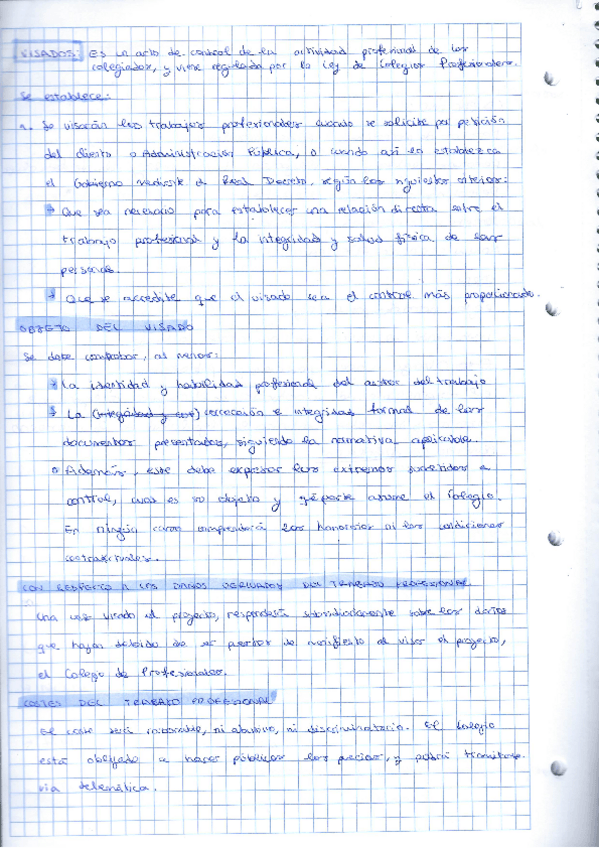 VISADOS: Es un acto de control de la actividad profesional de los
colegiados, y viene regulada por la Ley de Colegios Profesionales.
Se establece:
1. Se visarán los trabajos profesionales cuando se solicite por petición
del cliente o Administración Pública, o cuando así lo establezca
el Gobierno mediante Real Decreto, según los siguientes criterios:
Que sea necesario para establecer una relación directa entre el
trabajo profesional y la integridad y salud física de las
personas.
Que se acredite que el visado sea el control más proporcionado.
OBJETO DEL VISADO
Se debe comprobar, al menos:
La identidad y habilidad profesional del autor del trabajo
La corrección e integridad formal de los
documentos presentados, siguiendo la normativa aplicable.
Además, este debe expresar los extremos sometidos a
control, cual es su objeto y asume el Colegio.
En ningún caso comprenderá los honorarios ni las condiciones
contractuales.
CON RESPECTO A LOS DAÑOS DERIVADOS DEL TRABAJO PROFESIONAL
Una vez visado el proyecto, responderá subsidiariamente sobre los daños
que hayan debido de ser puestos de manifiesto al visar el proyecto,
el Colegio de Profesionales.
COSTES DEL TRABAJO PROFESIONAL
El coste será razonable, ni abusivo, ni discriminatorio. El Colegio
está obligado a hacer públicos los precios, y podrá tramitarse
vía telemática.